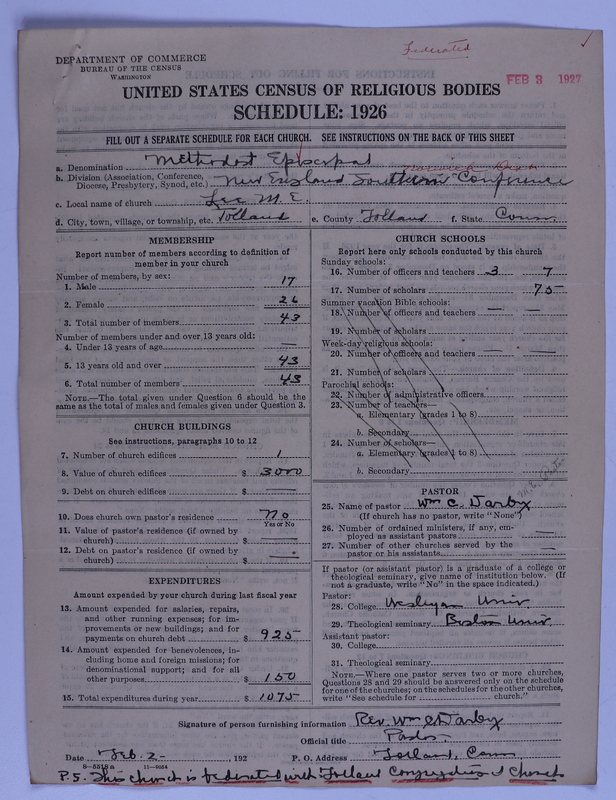 Federated
DEPARTMENT OF COMMERCE
BUREAU OF THE CENSUS
WASHINGTON
FEB 3 1927
UNITED STATES CENSUS OF RELIGIOUS BODIES
SCHEDULE: 1926
FILL OUT A SEPARATE SCHEDULE FOR EACH CHURCH. SEE INSTRUCTIONS ON THE BACK OF THIS SHEET
a. Denomination Methodist Episcopal
b. Division (Association, Conference, Diocese, Presbytery, Synod, etc.) New England Southern Conference
c. Local name of church Lee M. E.
d. City, town, village, or township, etc. Tolland e. County Tolland f. State Conn
MEMBERSHIP
Report number of members according to definition of
member in your church
Number of members, by sex:
1. Male 17
2. Female 26
3. Total number of members 43
Number of members under and over 13 years old:
4. Under 13 years of age —
5. 13 years old and over 43
6. Total number of members 43
NOTE.—The total given under Question 6 should be the
same as the total of males and females given under Question 3.
CHURCH BUILDINGS
See instructions, paragraphs 10 to 12
7. Number of church edifices 1
8. Value of church edifices $ 3000
9. Debt on church edifices $ —
10. Does church own pastor's residence no
Yes or No
11. Value of pastor's residence (if owned by
church) $ —
12. Debt on pastor's residence (if owned by
church) $ —
EXPENDITURES
Amount expended by your church during last fiscal year
13. Amount expended for salaries, repairs,
and other running expenses; for im-
provements or new buildings; and for
payments on church debt $ 925
14. Amount expended for benevolences, in-
cluding home and foreign missions; for
denominational support; and for all
other purposes $ 150
15. Total expenditures during year $ 1075
CHURCH SCHOOLS
Report here only schools conducted by this church
Sunday schools:
16. Number of officers and teachers 3 7
17. Number of scholars 75
Summer vacation Bible schools:
18. Number of officers and teachers — —
19. Number of scholars
Week-day religious schools:
20. Number of officers and teachers — —
21. Number of scholars
Parochial schools:
22. Number of administrative officers
23. Number of teachers—
a. Elementary (grades 1 to 8)
b. Secondary
24. Number of scholars—
a. Elementary (grades 1 to 8)
b. Secondary
PASTOR
25. Name of pastor Wm C. Darby
(If church has no pastor, write "None")
26. Number of ordained ministers, if any, em-
ployed as assistant pastors —
27. Number of other churches served by the
pastor or his assistants —
If pastor (or assistant pastor) is a graduate of a college or
theological seminary, give name of institution below. (If
not a graduate, write "No" in the space indicated.)
Pastor:
28. College Wesleyan Univ
29. Theological seminary Boston Univ
Assistant pastor:
30. College
31. Theological seminary
NOTE.—Where one pastor serves two or more churches,
Questions 28 and 29 should be answered only on the schedule
for one of the churches; on the schedules for the other churches,
write "See schedule for church."
Signature of person furnishing information Rev. Wm C Darby
Official title Pastor
Date Feb. 2- 192 P. O. Address Tolland, Conn
8—5518a 11—9054
P.S. This church is federated with Tolland Congregational Church